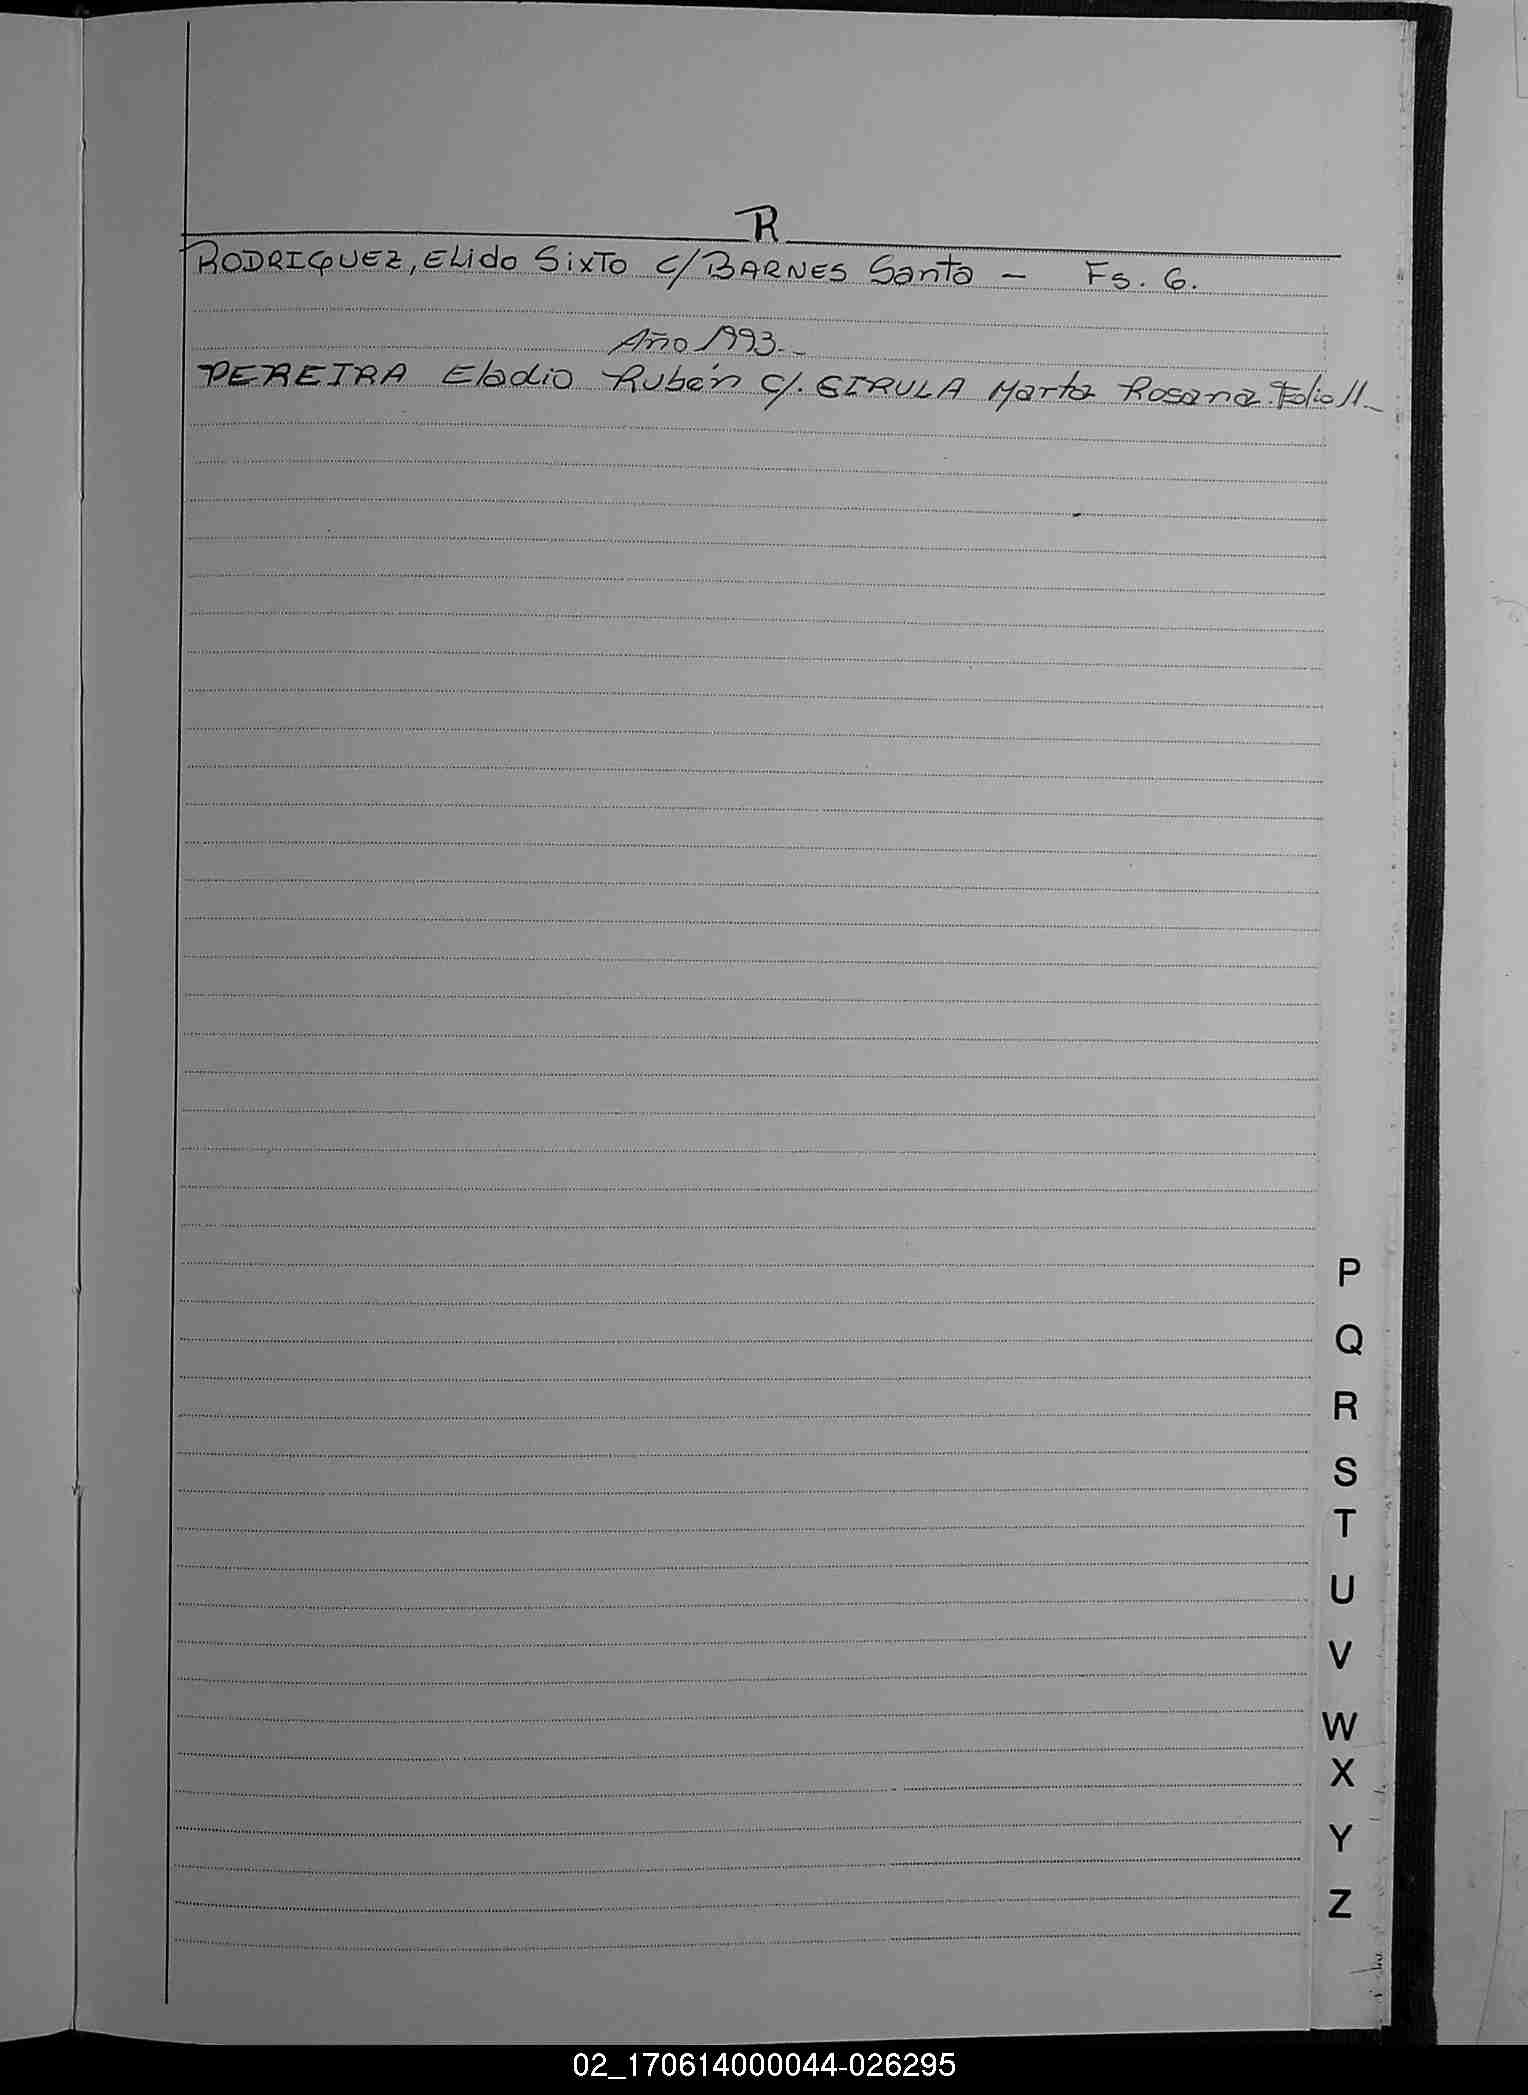 R
RODRIGUEZ, ELido SixTo C/ BARNES Santa - Fs. 6.
Año 1993.-
PEREIRA Eladio Rubén C/. GIRULA Marta Rosana. Folio 11-
P
Q
R
S
T
U
V
W
X
Y
Z
02_170614000044-026295